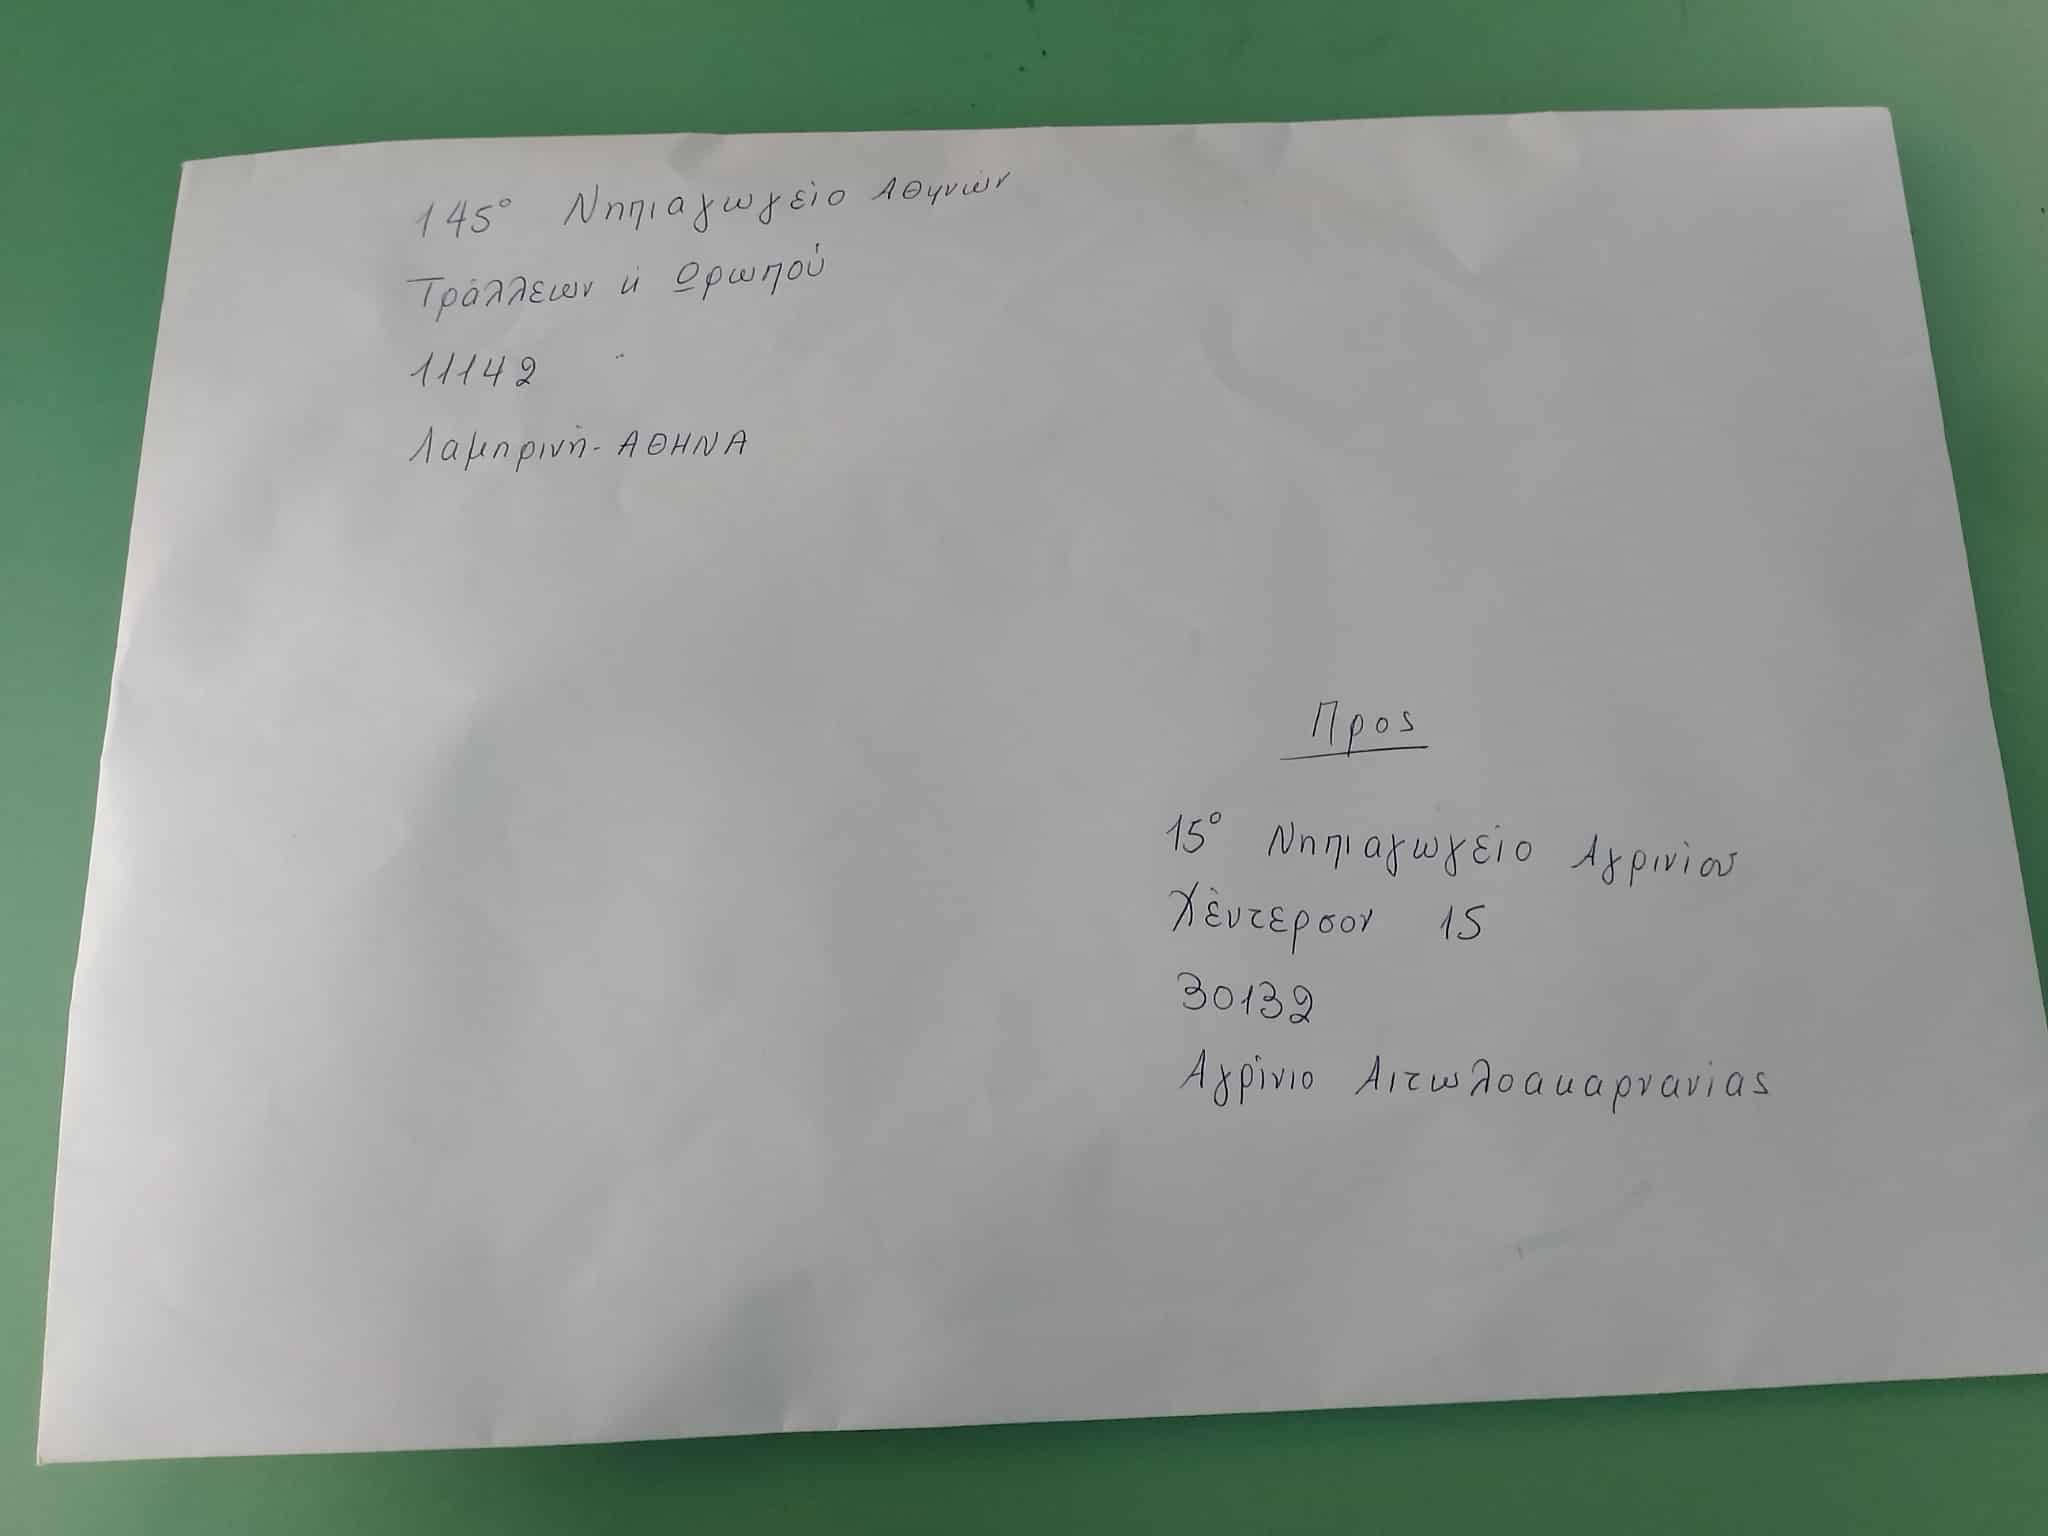 145° Νηπιαγωγείο Αθηνών
Τράλλεων κ΄ Ωρωπού
11142
Λαμπρινή - ΑΘΗΝΑ
Προς
15° Νηπιαγωγείο Αγρινίου
Χέντερσον 15
30132
Αγρίνιο Αιτωλοακαρνανίας